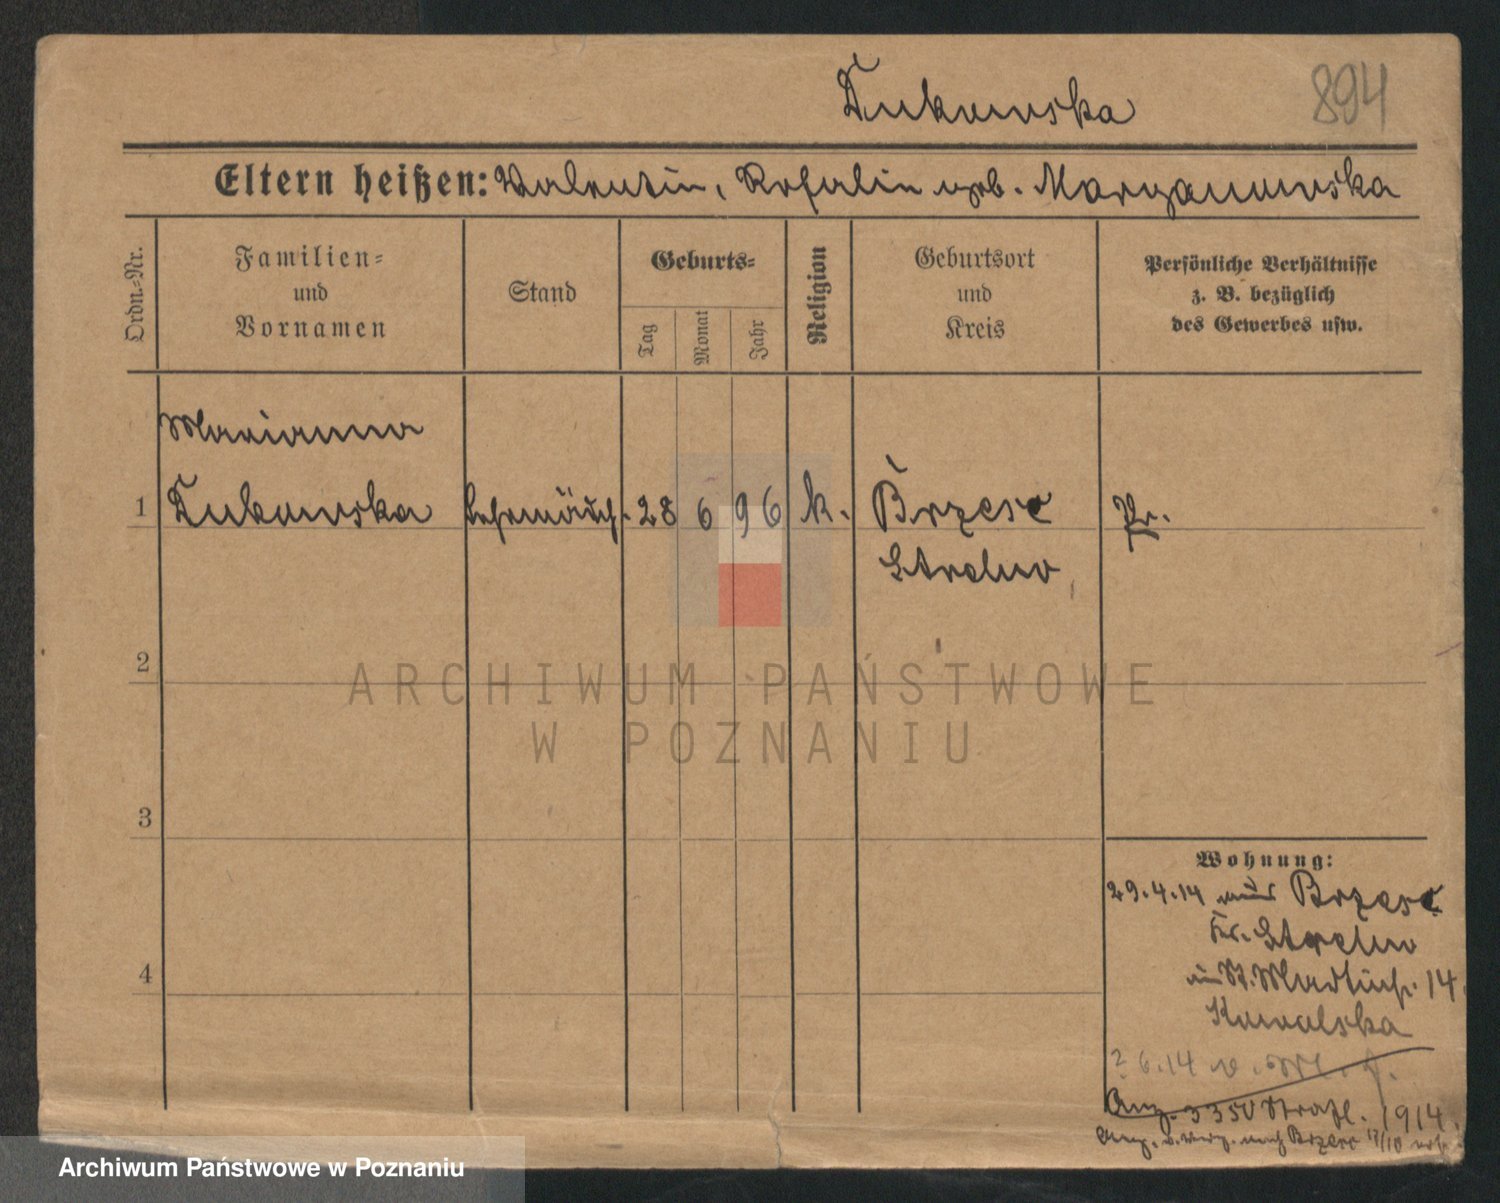 Łukowska 894
Eltern heißen: Valentin, Rosalie geb. Marganowska
Ordn.-Nr.
Familien-
und
Vornamen
Stand
Geburts-
Tag
Monat
Jahr
Religion
Geburtsort
und
Kreis
Persönliche Verhältnisse
z. B. bezüglich
des Gewerbes usw.
Marianna
1 Łukowska Lehrmädch. 28 6 96 k. Brzesc Pr.
Strelno
2
3
4
Wohnung:
29.4.14 aus Brzesc
Kr. Strelno
St. Martinstr. 14
Kowalska
2 6.14 v.
Anz. 3350 Strafl. 1914.
Anz. nach Brzesc 17/10
ARCHIWUM PAŃSTWOWE
W POZNANIU
Archiwum Państwowe w Poznaniu